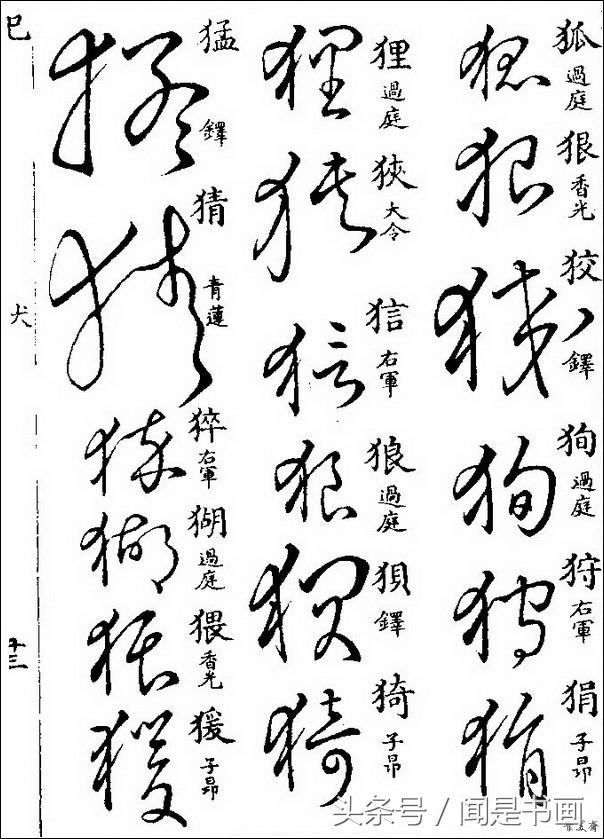 狐 過庭
狠 香光
狡 鐸
狥 過庭
狩 右軍
狷 子昂
狸 過庭
狹 大令
狺 右軍
狼 過庭
狽 鐸
猗 子昂
猛 鐸
猜 青蓮
猝 右軍
猢 過庭
猥 香光
猨 子昂
巳
犬
十三
头条号 / 闻是书画